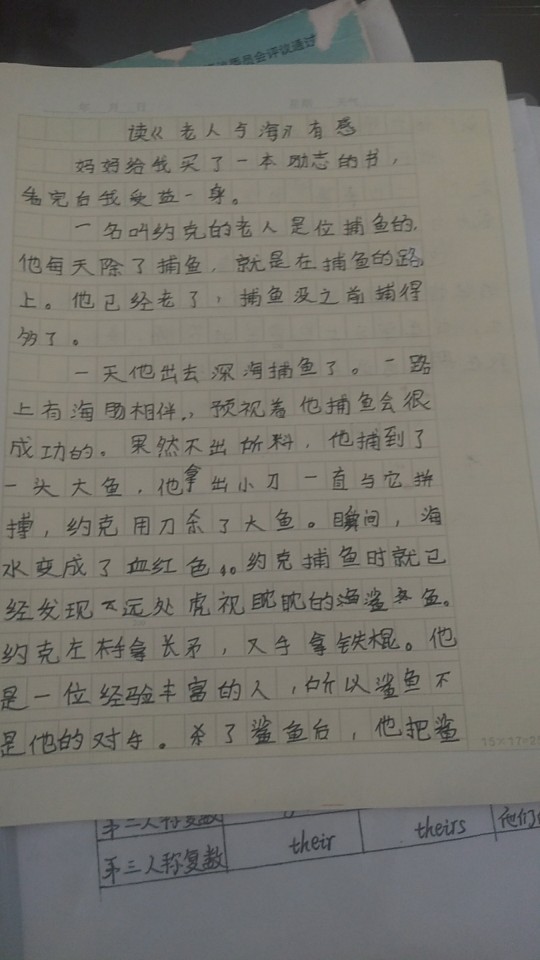 委员会评议通过
读《老人与海》有感
妈妈给我买了一本励志的书，
看完后我受益一身。
一名叫约克的老人是位捕鱼的，
他每天除了捕鱼，就是在捕鱼的路
上。他已经老了，捕鱼没之前捕得
多了。
一天他出去深海捕鱼了。一路
上有海鸥相伴，预视着他捕鱼会很
成功的。果然不出所料，他捕到了
一头大鱼，他拿出小刀一直与它拼
搏，约克用刀杀了大鱼。瞬间，海
水变成了血红色。约克捕鱼时就已
经发现远处虎视眈眈的鲨鱼。
约克左手拿长矛，又手拿铁棍。他
是一位经验丰富的人，所以鲨鱼不
是他的对手。杀了鲨鱼后，他把鲨
15×17=2
第二人称复数
第三人称复数 their theirs 他们